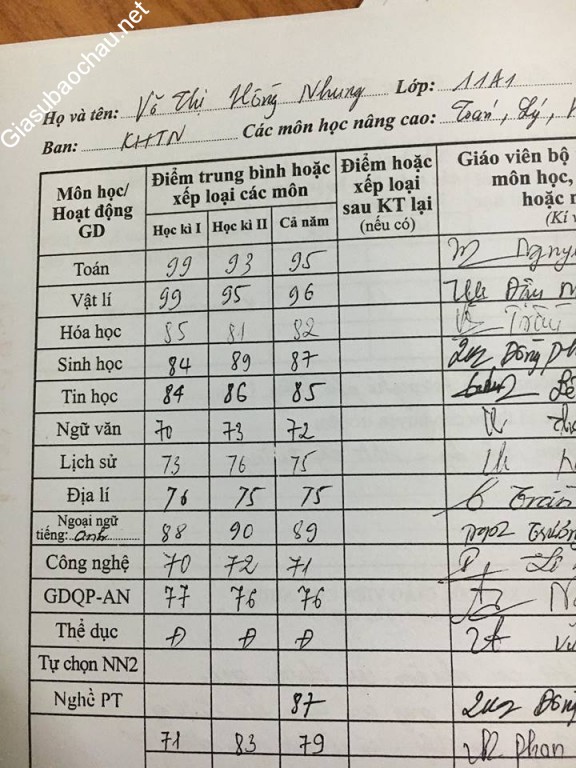 Giasubaochau.net
Họ và tên: Võ Thị Hồng Nhung Lớp: 11A1
Ban: KHTN Các môn học nâng cao: Toán, Lý,
Môn học/ Hoạt động GD
Điểm trung bình hoặc xếp loại các môn
Điểm hoặc xếp loại sau KT lại (nếu có)
Giáo viên bộ môn học, hoặc
Học kì I Học kì II Cả năm
Toán 99 93 95
Vật lí 99 95 96
Hóa học 85 81 82
Sinh học 84 89 87
Tin học 84 86 85
Ngữ văn 70 73 72
Lịch sử 73 76 75
Địa lí 76 75 75 Trần
Ngoại ngữ
tiếng: Anh 88 90 89
Công nghệ 70 72 71
GDQP-AN 77 76 76
Thể dục Đ Đ Đ
Tự chọn NN2
Nghề PT 87
71 83 79 Phan